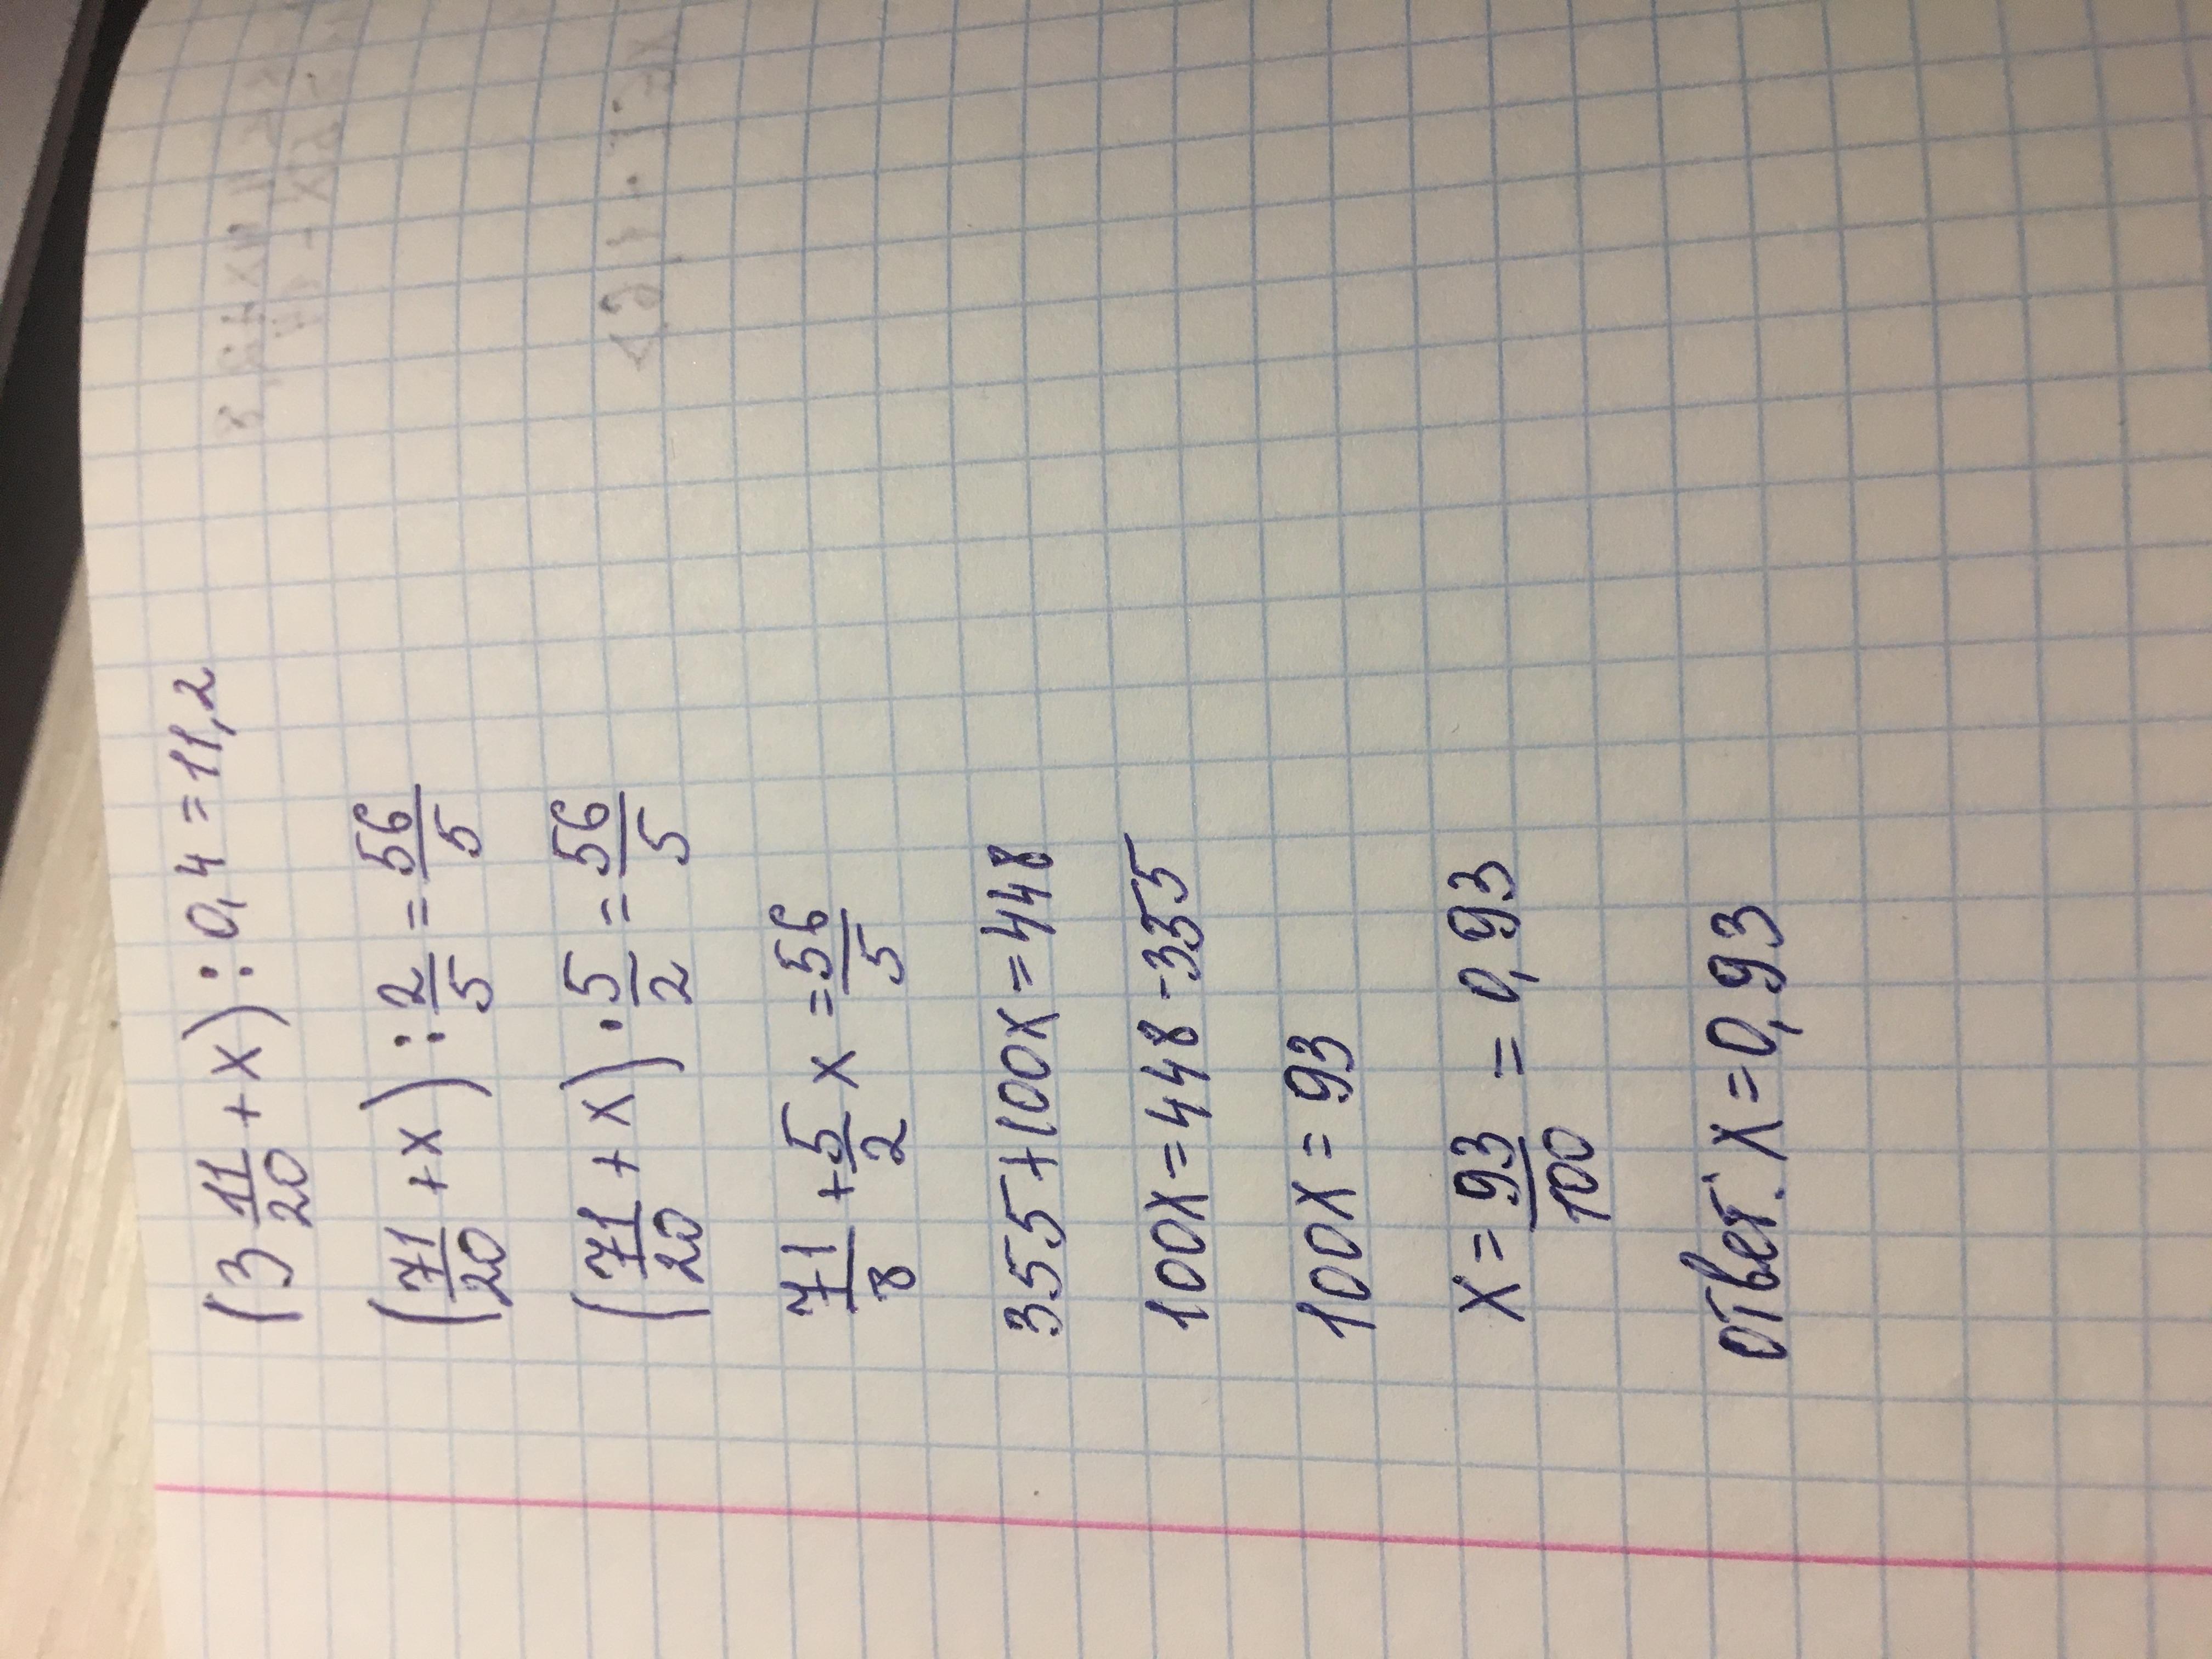 (3 11/20 + x) : 0,4 = 11,2
(71/20 + x) : 2/5 = 56/5
(71/20 + x) · 5/2 = 56/5
71/8 + 5/2 x = 56/5
355 + 100x = 448
100x = 448 - 355
100x = 93
x = 93/100 = 0,93
ответ: x = 0,93